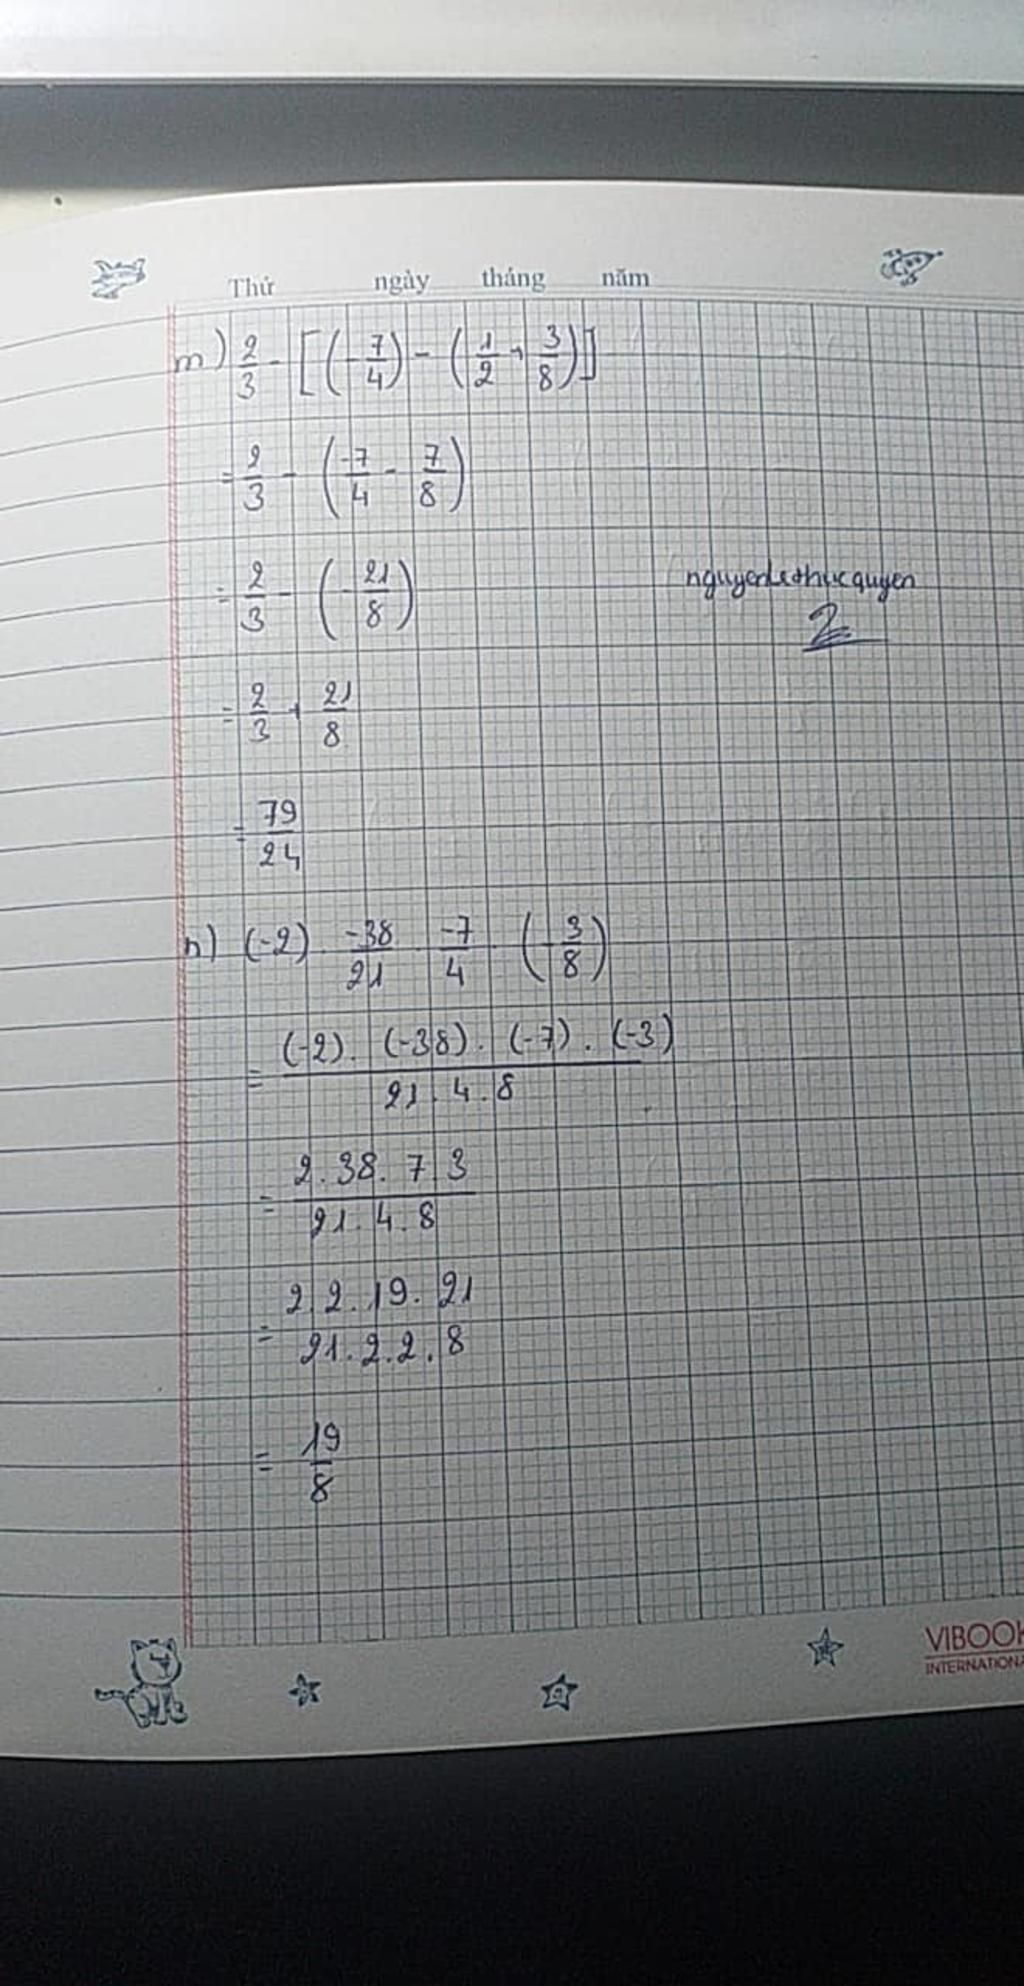 Thứ ngày tháng năm
m) 2/3 - [(-7/4) - (1/2 + 3/8)]
= 2/3 - (-7/4 - 7/8)
= 2/3 - (-21/8)
nguyenlethucquyen
2
= 2/3 + 21/8
= 79/24
n) (-2) . -38/21 . -7/4 . (-3/8)
= (-2) . (-38) . (-7) . (-3) / 21 . 4 . 8
= 2 . 38 . 7 . 3 / 21 . 4 . 8
= 2 . 2 . 19 . 21 / 21 . 2 . 2 . 8
= 19/8
VIBOOK
INTERNATIONA